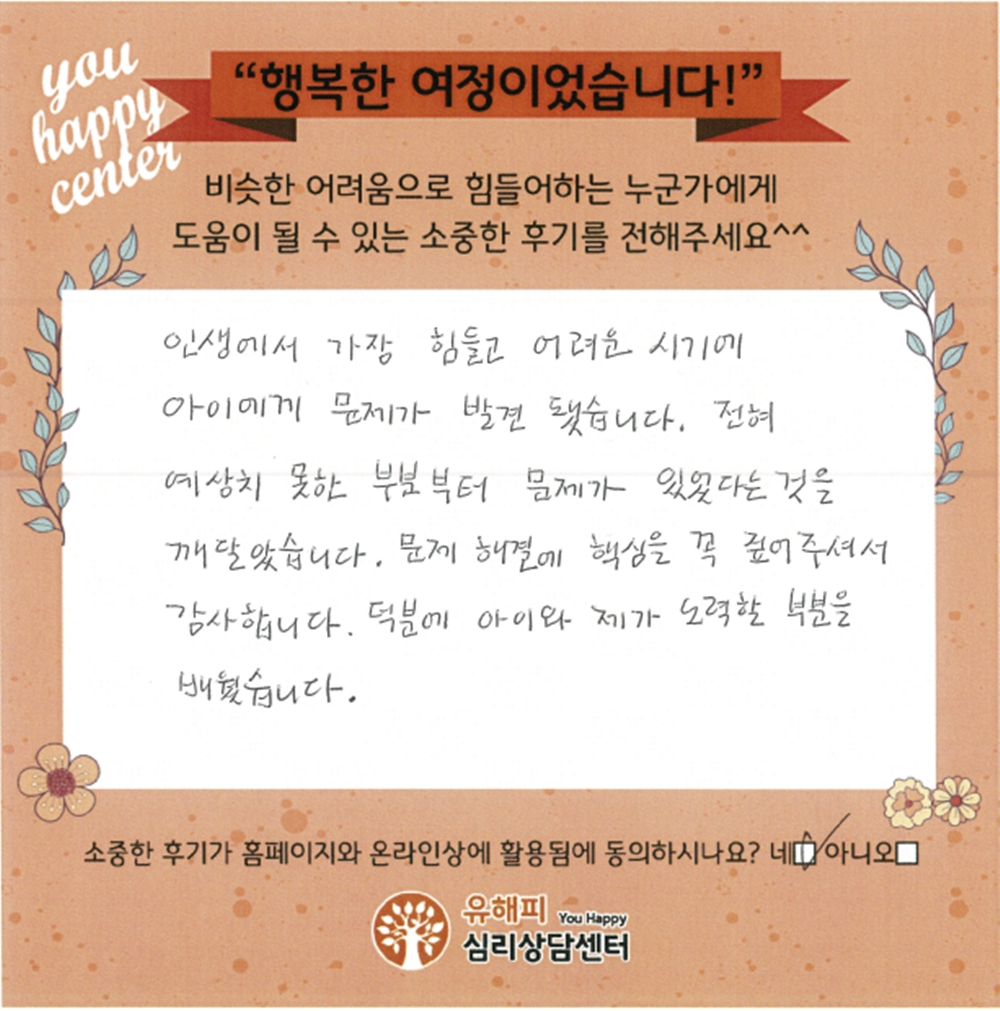 you
happy
center
“행복한 여정이었습니다!”
비슷한 어려움으로 힘들어하는 누군가에게
도움이 될 수 있는 소중한 후기를 전해주세요^^
인생에서 가장 힘들고 어려운 시기에
아이에게 문제가 발견 됐습니다. 전혀
예상치 못한 부분부터 문제가 있었다는 것을
깨달았습니다. 문제 해결에 핵심을 꼭 짚어주셔서
감사합니다. 덕분에 아이와 제가 노력할 부분을
배웠습니다.
소중한 후기가 홈페이지와 온라인상에 활용됨에 동의하시나요? 네☑ 아니오□
유해피 You Happy
심리상담센터